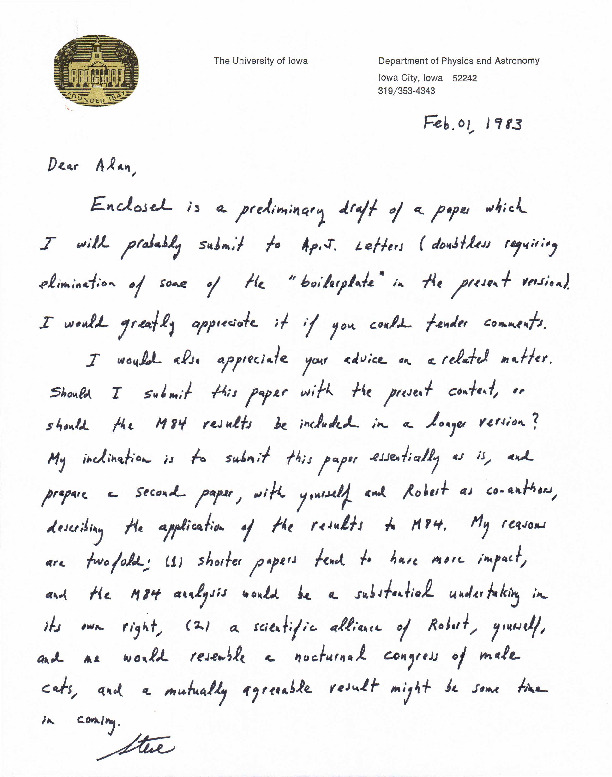 The University of Iowa
Department of Physics and Astronomy
Iowa City, Iowa 52242
319/353-4343
FOUNDED 1847
Feb. 01, 1983
Dear Alan,
Enclosed is a preliminary draft of a paper which
I will probably submit to Ap.J. Letters (doubtless requiring
elimination of some of the "boilerplate" in the present version).
I would greatly appreciate it if you could tender comments.
I would also appreciate your advice on a related matter.
Should I submit this paper with the present content, or
should the M84 results be included in a longer version?
My inclination is to submit this paper essentially as is, and
prepare a second paper, with yourself and Robert as co-authors,
describing the application of the results to M84. My reasons
are twofold: (1) shorter papers tend to have more impact,
and the M84 analysis would be a substantial undertaking in
its own right, (2) a scientific alliance of Robert, yourself,
and me would resemble a nocturnal congress of male
cats, and a mutually agreeable result might be some time
in coming.
Steve